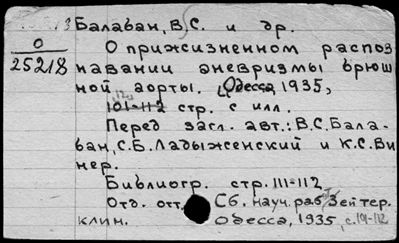 Балабан, В.С. и др.
О
25218
О прижизненном распоз
навании аневризмы брюш
ной аорты. Одесса, 1935,
101-112 стр. с илл.
Перед загл. авт.: В.С. Бала-
бан, С.Б. Ладыженский и К.С. Ви
нер.
Библиогр. стр. 111-112
Отд. отт. Сб. науч. раб. Зей тер.
клин. Одесса, 1935, с. 101-112